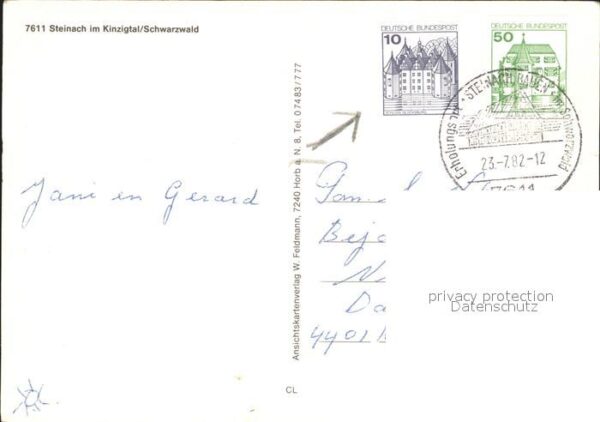 7611 Steinach im Kinzigtal/Schwarzwald
DEUTSCHE BUNDESPOST
10
DEUTSCHE BUNDESPOST
50
STEINACH, BADEN
im Schwarzwald
Erholungsort
23.-7.82-12
7611
Jani en Gerard
Fam.
Bej
N
Da
4401
Ansichtskartenverlag W. Feldmann, 7240 Horb a. N. 8, Tel. 0 74 83 / 7 77
CL
privacy protection
Datenschutz